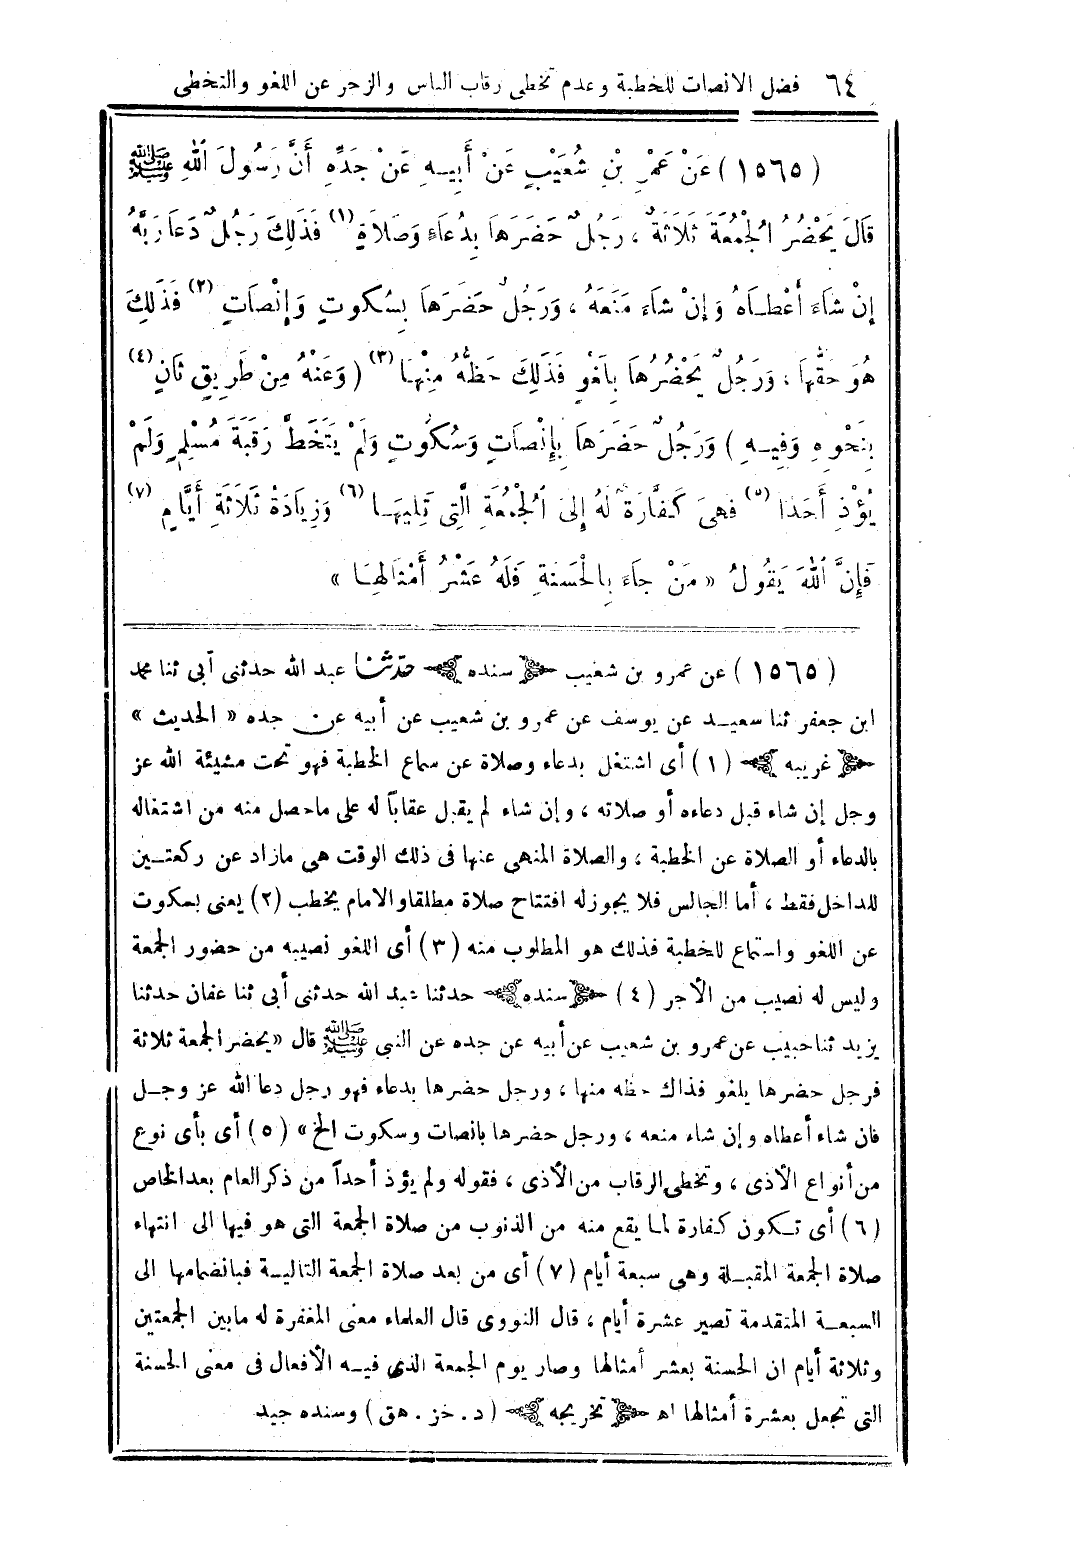 ٦٤ فضل الانصات للخطبة وعدم تخطى رقاب الناس والزجر عن اللغو والتخطى
(١٥٦٥) عَنْ عَمْرِ بْنِ شُعَيْبٍ عَنْ أَبِيهِ عَنْ جَدِّهِ أَنَّ رَسُولَ اللهِ ﷺ
قَالَ يَحْضُرُ الْجُمُعَةَ ثَلَاثَةٌ ، رَجُلٌ حَضَرَهَا بِدُعَاءٍ وَصَلَاةٍ (١) فَذَلِكَ رَجُلٌ دَعَا رَبَّهُ
إِنْ شَاءَ أَعْطَاهُ وَإِنْ شَاءَ مَنَعَهُ ، وَرَجُلٌ حَضَرَهَا بِسُكُوتٍ وَإِنْصَاتٍ (٢) فَذَلِكَ
هُوَ حَقُّهَا ، وَرَجُلٌ يَحْضُرُهَا بِلَغْوٍ فَذَلِكَ حَظُّهُ مِنْهَا (٣) (وَعَنْهُ مِنْ طَرِيقٍ ثَانٍ (٤)
بِنَحْوِهِ وَفِيهِ) وَرَجُلٌ حَضَرَهَا بِإِنْصَاتٍ وَسُكُوتٍ وَلَمْ يَتَخَطَّ رَقَبَةَ مُسْلِمٍ وَلَمْ
يُؤْذِ أَحَدًا (٥) فَهِيَ كَفَّارَةٌ لَهُ إِلَى الْجُمُعَةِ الَّتِى تَلِيهَا (٦) وَزِيَادَةُ ثَلَاثَةِ أَيَّامٍ (٧)
فَإِنَّ اللهَ يَقُولُ « مَنْ جَاءَ بِالْحَسَنَةِ فَلَهُ عَشْرُ أَمْثَالِهَا »
(١٥٦٥) عن عمرو بن شعيب ﴿ سنده ﴾ حدثنا عبد الله حدثنى أبى ثنا محمد
ابن جعفر ثنا سعيد عن يوسف عن عمرو بن شعيب عن أبيه عن جده « الحديث »
﴿ غريبه ﴾ (١) أى اشتغل بدعاء وصلاة عن سماع الخطبة فهو تحت مشيئة الله عز
وجل إن شاء قبل دعاءه أو صلاته ، وإن شاء لم يقبل عقاباً له على ماحصل منه من اشتغاله
بالدعاء أو الصلاة عن الخطبة ، والصلاة المنهى عنها فى ذلك الوقت هى مازاد عن ركعتين
للداخل فقط ، أما الجالس فلا يجوز له افتتاح صلاة مطلقا والامام يخطب (٢) يعنى بسكوت
عن اللغو واستماع للخطبة فذلك هو المطلوب منه (٣) أى اللغو نصيبه من حضور الجمعة
وليس له نصيب من الأجر (٤) ﴿ سنده ﴾ حدثنا عبد الله حدثنى أبى ثنا عفان حدثنا
يزيد ثنا حبيب عن عمرو بن شعيب عن أبيه عن جده عن النبى ﷺ قال «يحضر الجمعة ثلاثة
فرجل حضرها يلغو فذاك حظه منها ، ورجل حضرها بدعاء فهو رجل دعا الله عز وجل
فان شاء أعطاه وإن شاء منعه ، ورجل حضرها بانصات وسكوت الخ » (٥) أى بأى نوع
من أنواع الأذى ، وتخطى الرقاب من الأذى ، فقوله ولم يؤذ أحداً من ذكر العام بعد الخاص
(٦) أى تكون كفارة لما يقع منه من الذنوب من صلاة الجمعة التى هو فيها الى انتهاء
صلاة الجمعة المقبلة وهى سبعة أيام (٧) أى من بعد صلاة الجمعة التالية فبانضمامها الى
السبعة المتقدمة تصير عشرة أيام ، قال النووى قال العلماء معنى المغفرة له مابين الجمعتين
وثلاثة أيام ان الحسنة بعشر أمثالها وصار يوم الجمعة الذى فيه الأفعال فى معنى الحسنة
التى تجعل بعشرة أمثالها اه ﴿ تخريجه ﴾ (د . خز . هق) وسنده جيد